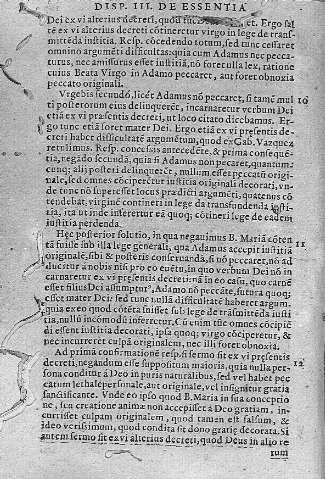 DISP. III. DE ESSENTIA
Dei ex vi alterius decreti, quod et. Ergo sal
tẽ ex vi alterius decreti cõtineretur virgo in lege de trans-
mittẽda iustitia. Resp. cõcedendo totum, sed tunc cessaret
omnino argumẽti difficultas: quia cum Adamus nec pecca-
turus, nec amissurus esset iustitiã, nõ foret ulla lex, ratione
cuius Beata Virgo in Adamo peccaret, aut foret obnoxia
peccato originali.
Urgebis secundo, licèt Adamus nõ peccaret, si tamẽ mul 10
ti posterorum eius delinquerẽt, incarnaretur verbum Dei
etiã ex vi præsentis decreti, ut loco citato dicebamus. Er-
go tunc etiã foret mater Dei. Ergo etiã ex vi præsentis de-
creti habet difficultatẽ argumẽtum, quod ex Gab. Vazquez
retulimus. Resp. concessis antecedẽte, & prima consequẽ-
tia, negãdo secunda, quia si Adamus non peccaret, quantum-
cunq; alij posteri delinquerẽt, nullum esset peccatũ origi-
nale, sed omnes cõciperẽtur iustitia originali decorati, un-
de tunc nõ superesset locus prædicti argumẽti, quatenus cõ
tendebat, virginẽ contineri in lege de transfundenda iusti-
tia, ita ut inde inferretur eã quoq; cõtineri lege de eadem
iustitia perdenda.
Hæc posterior solutio, in qua negauimus B. Mariã cõten 11
tã fuisse sub illa lege generali, qua Adamus accepit iustitiã
originale, sibi & posteris conseruanda, si nõ peccaret, nõ ad
ducitur à nobis nisi pro eo euẽtu, in quo verbum Dei nõ in
carnaretur ex vi præsentis decreti: nã in eo casu, quo carnẽ
esset filius Dei assumptur, Adamo nõ peccãte, futura quoq;
esset mater Dei: sed tunc nulla difficultatẽ haberet argum.
quia ex eo quod cõtẽta fuisset sub lege de trãsmittẽda iusti
tia, nullũ incomodũ inferretur. Cũ enim tũc omnes cõcipiẽ
di essent iustitia decorati, ipsa quoq; virgo cõciperetur, &
nec incurreret culpã originalem, nec illi foret obnoxia.
Ad primã confirmationẽ resp. si sermo sit ex vi præsentis 12
decreti, negandum esse suppositum maioris, quia nulla per-
sona conditur à Deo in puris naturalibus, sed vel habet pec
catum lethale personale, aut originale, vel insignitur gratia
sanctificante. Unde eo ipso quod B. Maria in sua conceptio
ne, seu creatione animæ non accepisset à Deo gratiam, in-
currisset culpam originalem, quod tamen est falsum, &
ideo verissimum, quod condita sit dono gratiæ decorata. Si
autem sermo sit ex vi alterius decreti, quo Deus in alio re
rum